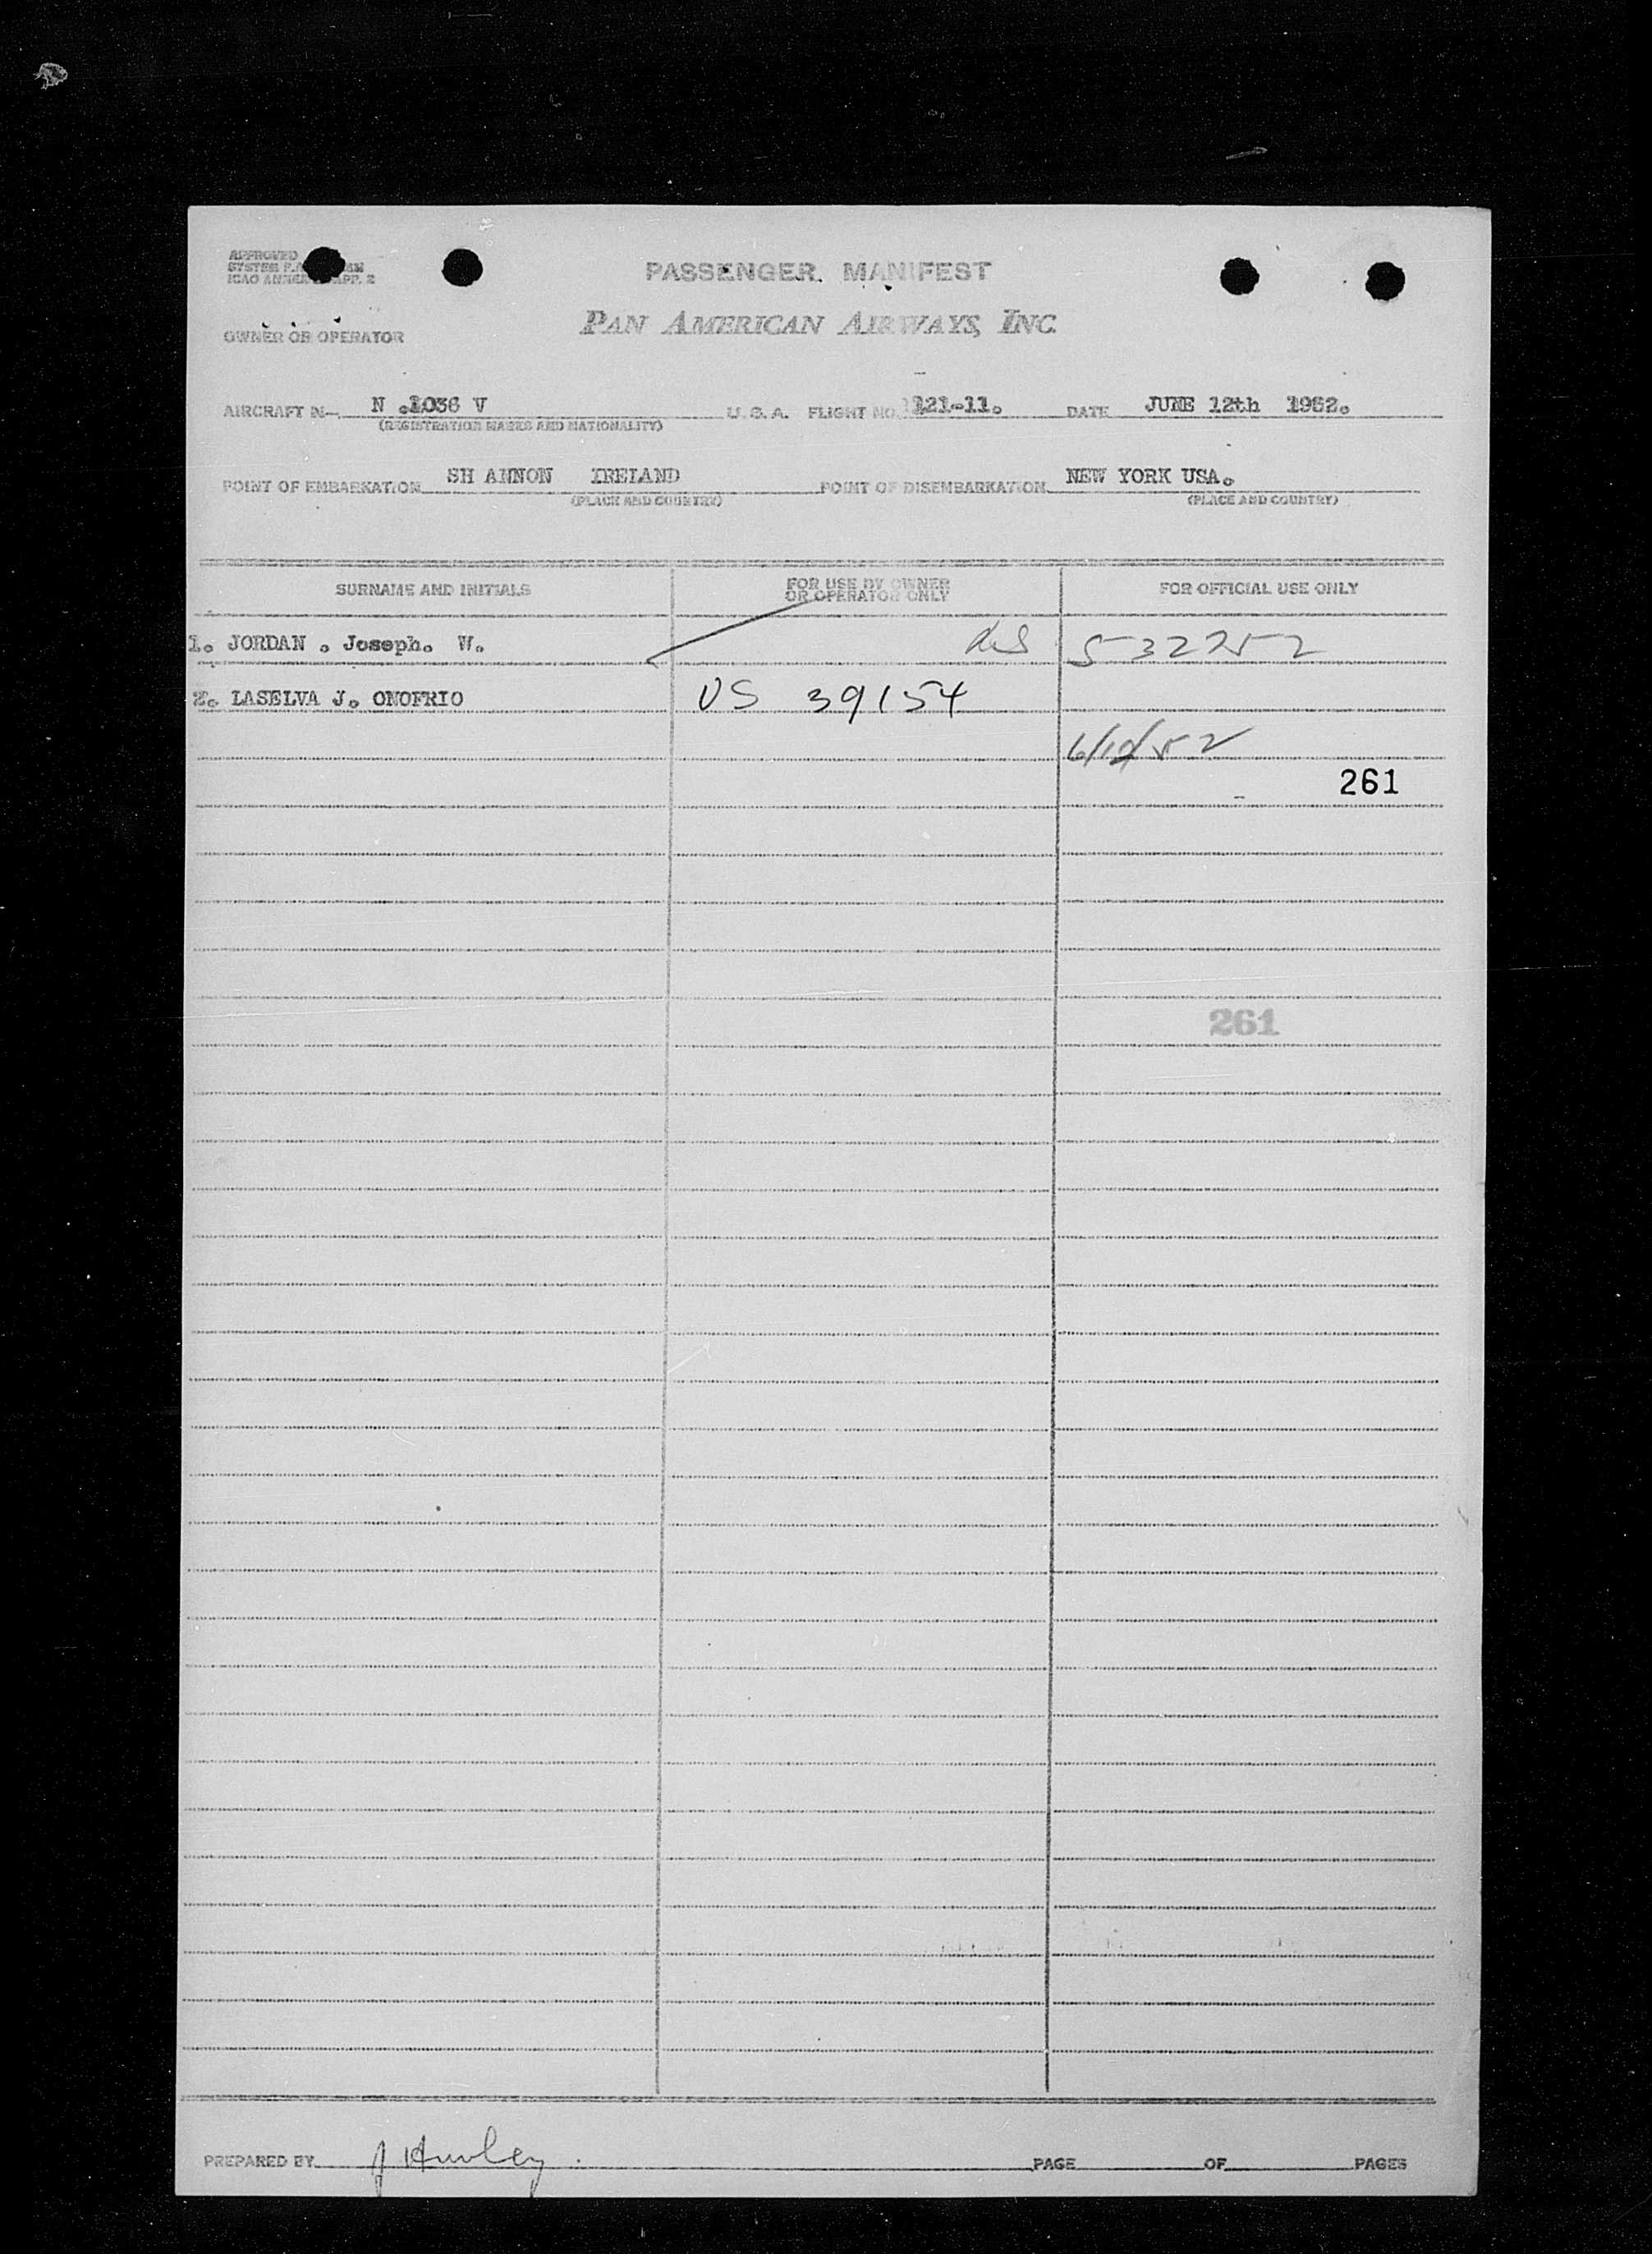 APPROVED
ICAO ANNEX APP. 2
PASSENGER MANIFEST
PAN AMERICAN AIRWAYS, INC.
OWNER OR OPERATOR
AIRCRAFT N— N .1036 V U. S. A. FLIGHT NO. 121-11. DATE JUNE 12th 1952.
(REGISTRATION MARKS AND NATIONALITY)
POINT OF EMBARKATION SH ANNON IRELAND POINT OF DISEMBARKATION NEW YORK USA.
(PLACE AND COUNTRY) (PLACE AND COUNTRY)
SURNAME AND INITIALS FOR USE BY OWNER OR OPERATOR ONLY FOR OFFICIAL USE ONLY
1. JORDAN . Joseph. W. 532252
2. LASELVA J. ONOFRIO US 39154
6/12/52
261
261
PREPARED BY J Hurley. PAGE OF PAGES